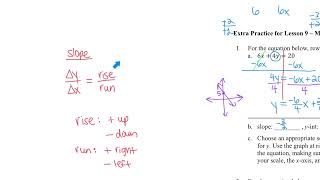 6 6x
+2
slope
Δy/Δx = rise/run
rise: + up
– down
run: + right
– left
Extra Practice for Lesson 9 – M
1. For the equation below, rew
a. 6x + 4y = 20
-6x -6x
4y = -6x + 20
4 4
y = -6/4 x +
b. slope: -3/2, y-int:
c. Choose an appropriate sc
for y. Use the graph at rig
the equation, making sure
your scale, the x-axis, an